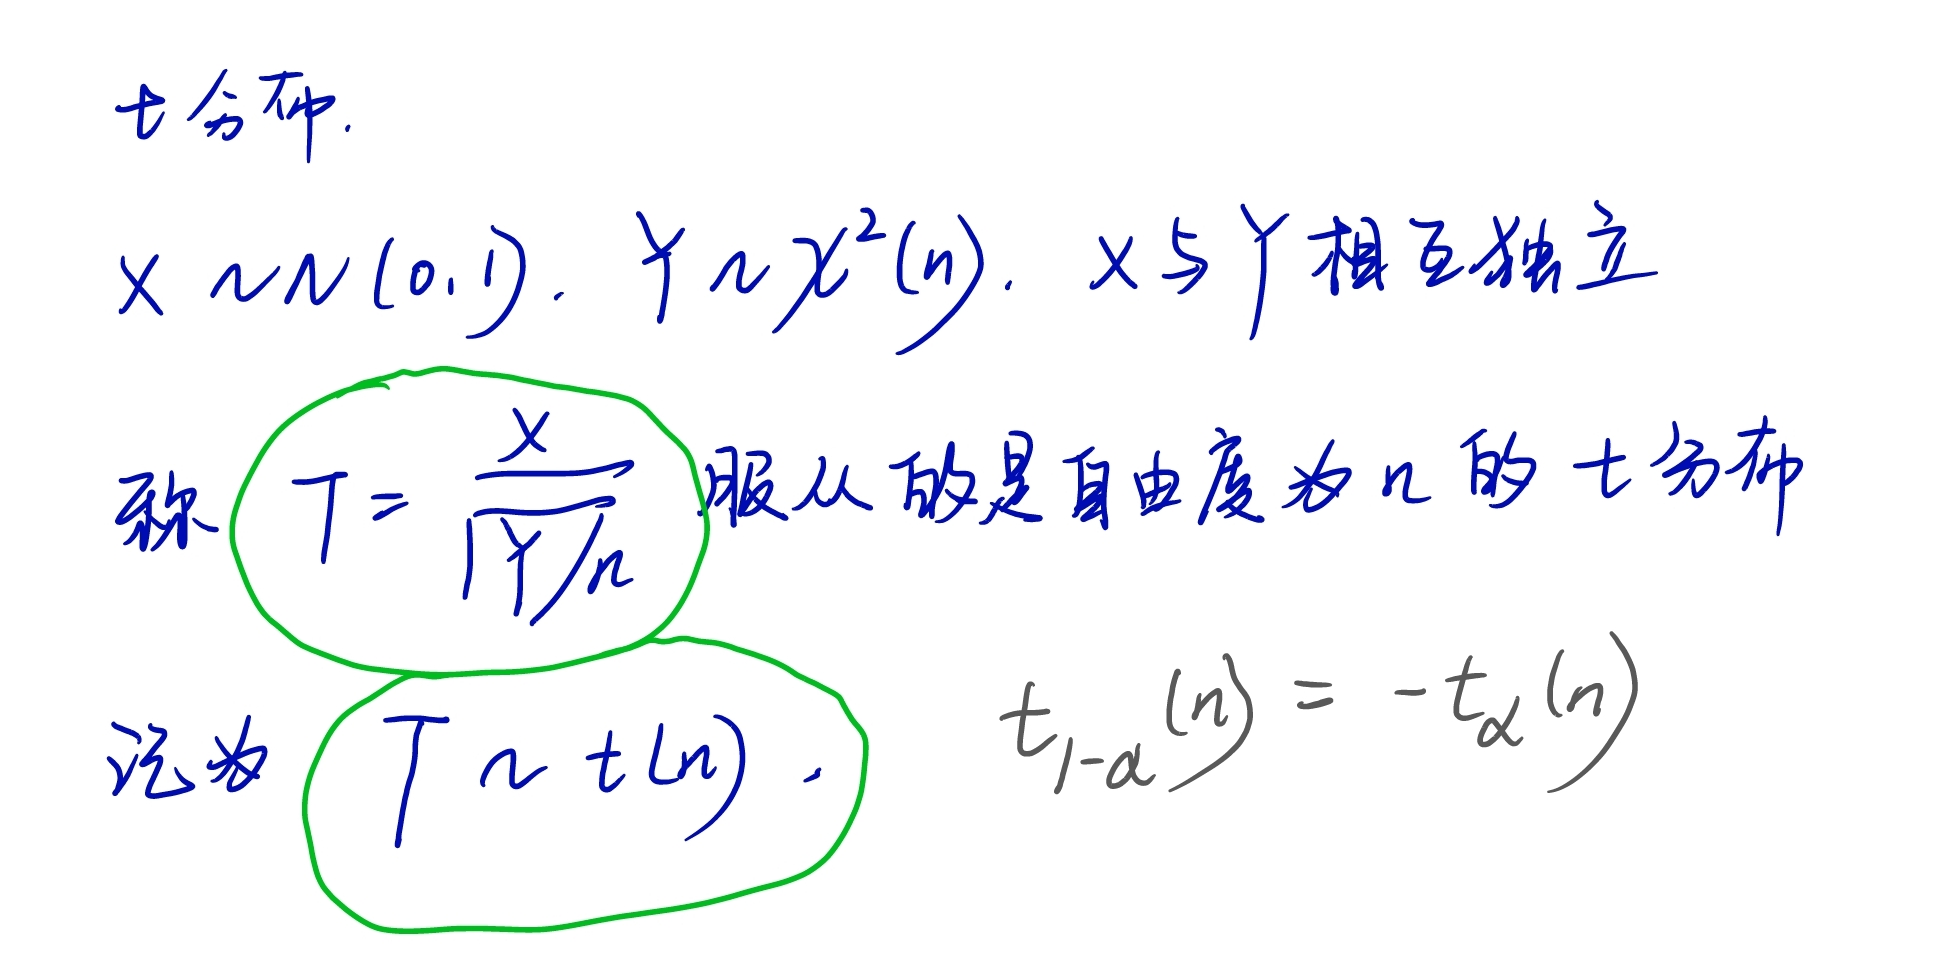 t分布.
X ~ N(0,1). Y ~ χ²(n). X与Y相互独立
称 T = X / √(Y/n) 服从的是自由度为n的t分布
记为 T ~ t(n).
t_{1-α}(n) = -t_α(n)